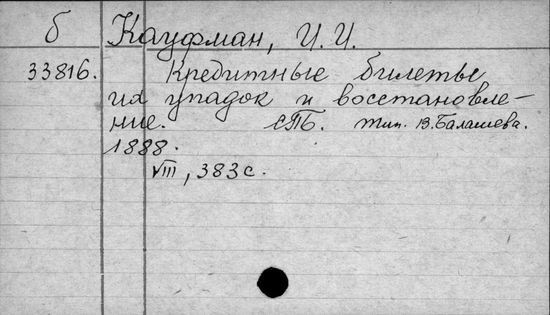 б Кауфман, И. И.
33816. Кредитные билеты
их упадок и восстановле-
ние. СПБ. тип. В. Балашева.
1888.
VIII, 383 с.